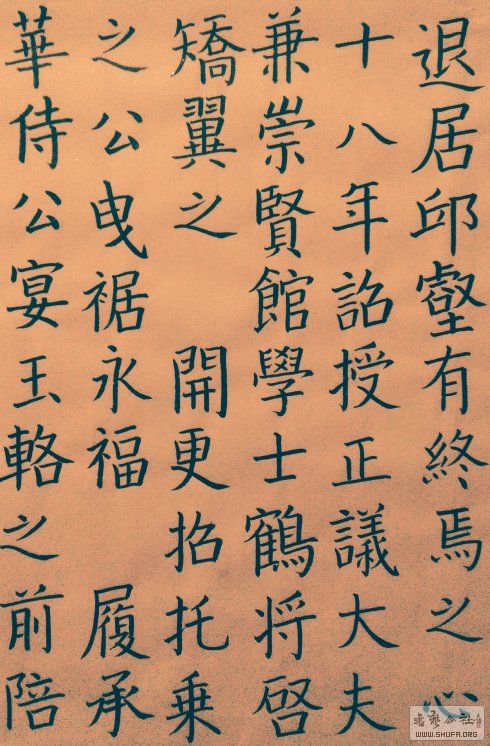 退居邱壑有終焉之心
十八年詔授正議大夫
兼崇賢館學士鶴将啓
矯翼之 開更招托乗
之公曳裾永福 履承
華侍公宴玉輅之前陪
WWW.SHUFA.ORG